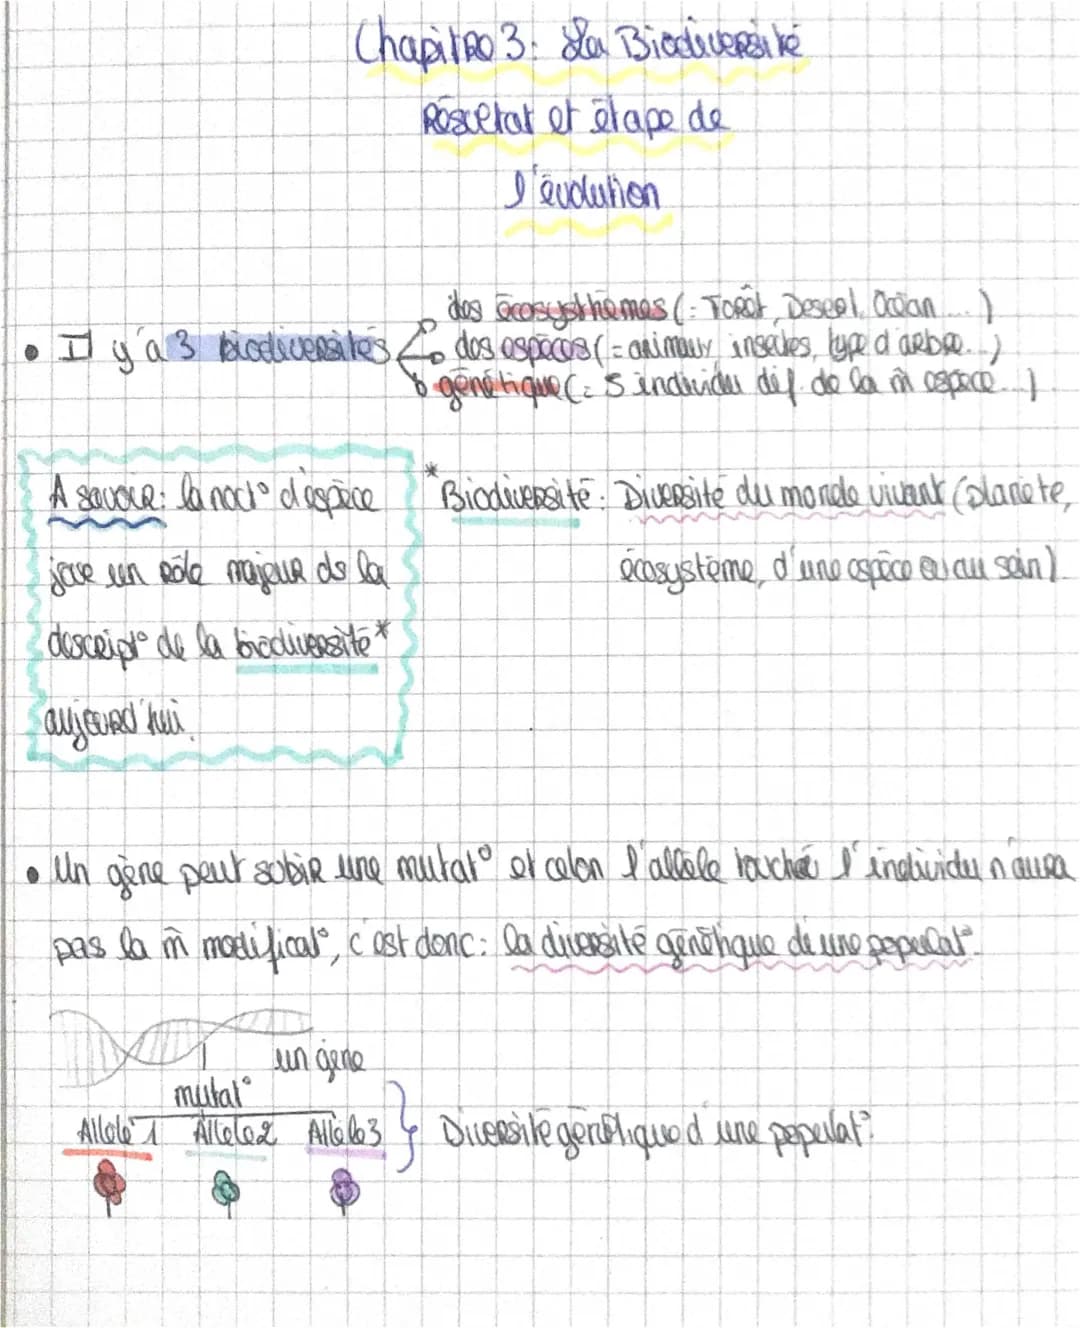 Chapitre 3: La Biodiversité
Résultat et étape de
l'évolution
des écosysthèmes (= Forêt, Desert, Océan ...)
• Il y'a 3 biodiversités des espèces (= animaux, insectes, type d'arbre...)
génétique (= 5 individu dif. de la m̂ espèce ...)
A savoir: la not° d'espèce
joue un rôle majeur ds la
descript° de la biodiversité*
aujourd'hui.
*Biodiversité: Diversité du monde vivant (planète,
écosystème, d'une espèce ou au sein)
• Un gène peut subir une mutat° et celon l'allèle touchée l'individu n'aura
pas la m̂ modificat°, c'est donc: la diversité génétique de une populat°.
un gène
mutat°
Allèle 1 Allèle 2 Allèle 3 } Diversité génétique d'une populat°.